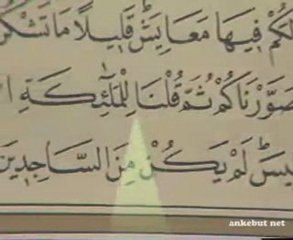 لَكُمْ فِيهَا مَعَايِشَ قَلِيلًا مَا تَشْكُر
صَوَّرْنَاكُمْ ثُمَّ قُلْنَا لِلْمَلَٰٓئِكَةِ ا
لِيسَ لَمْ يَكُنْ مِنَ السَّاجِدِينَ
ankebut net